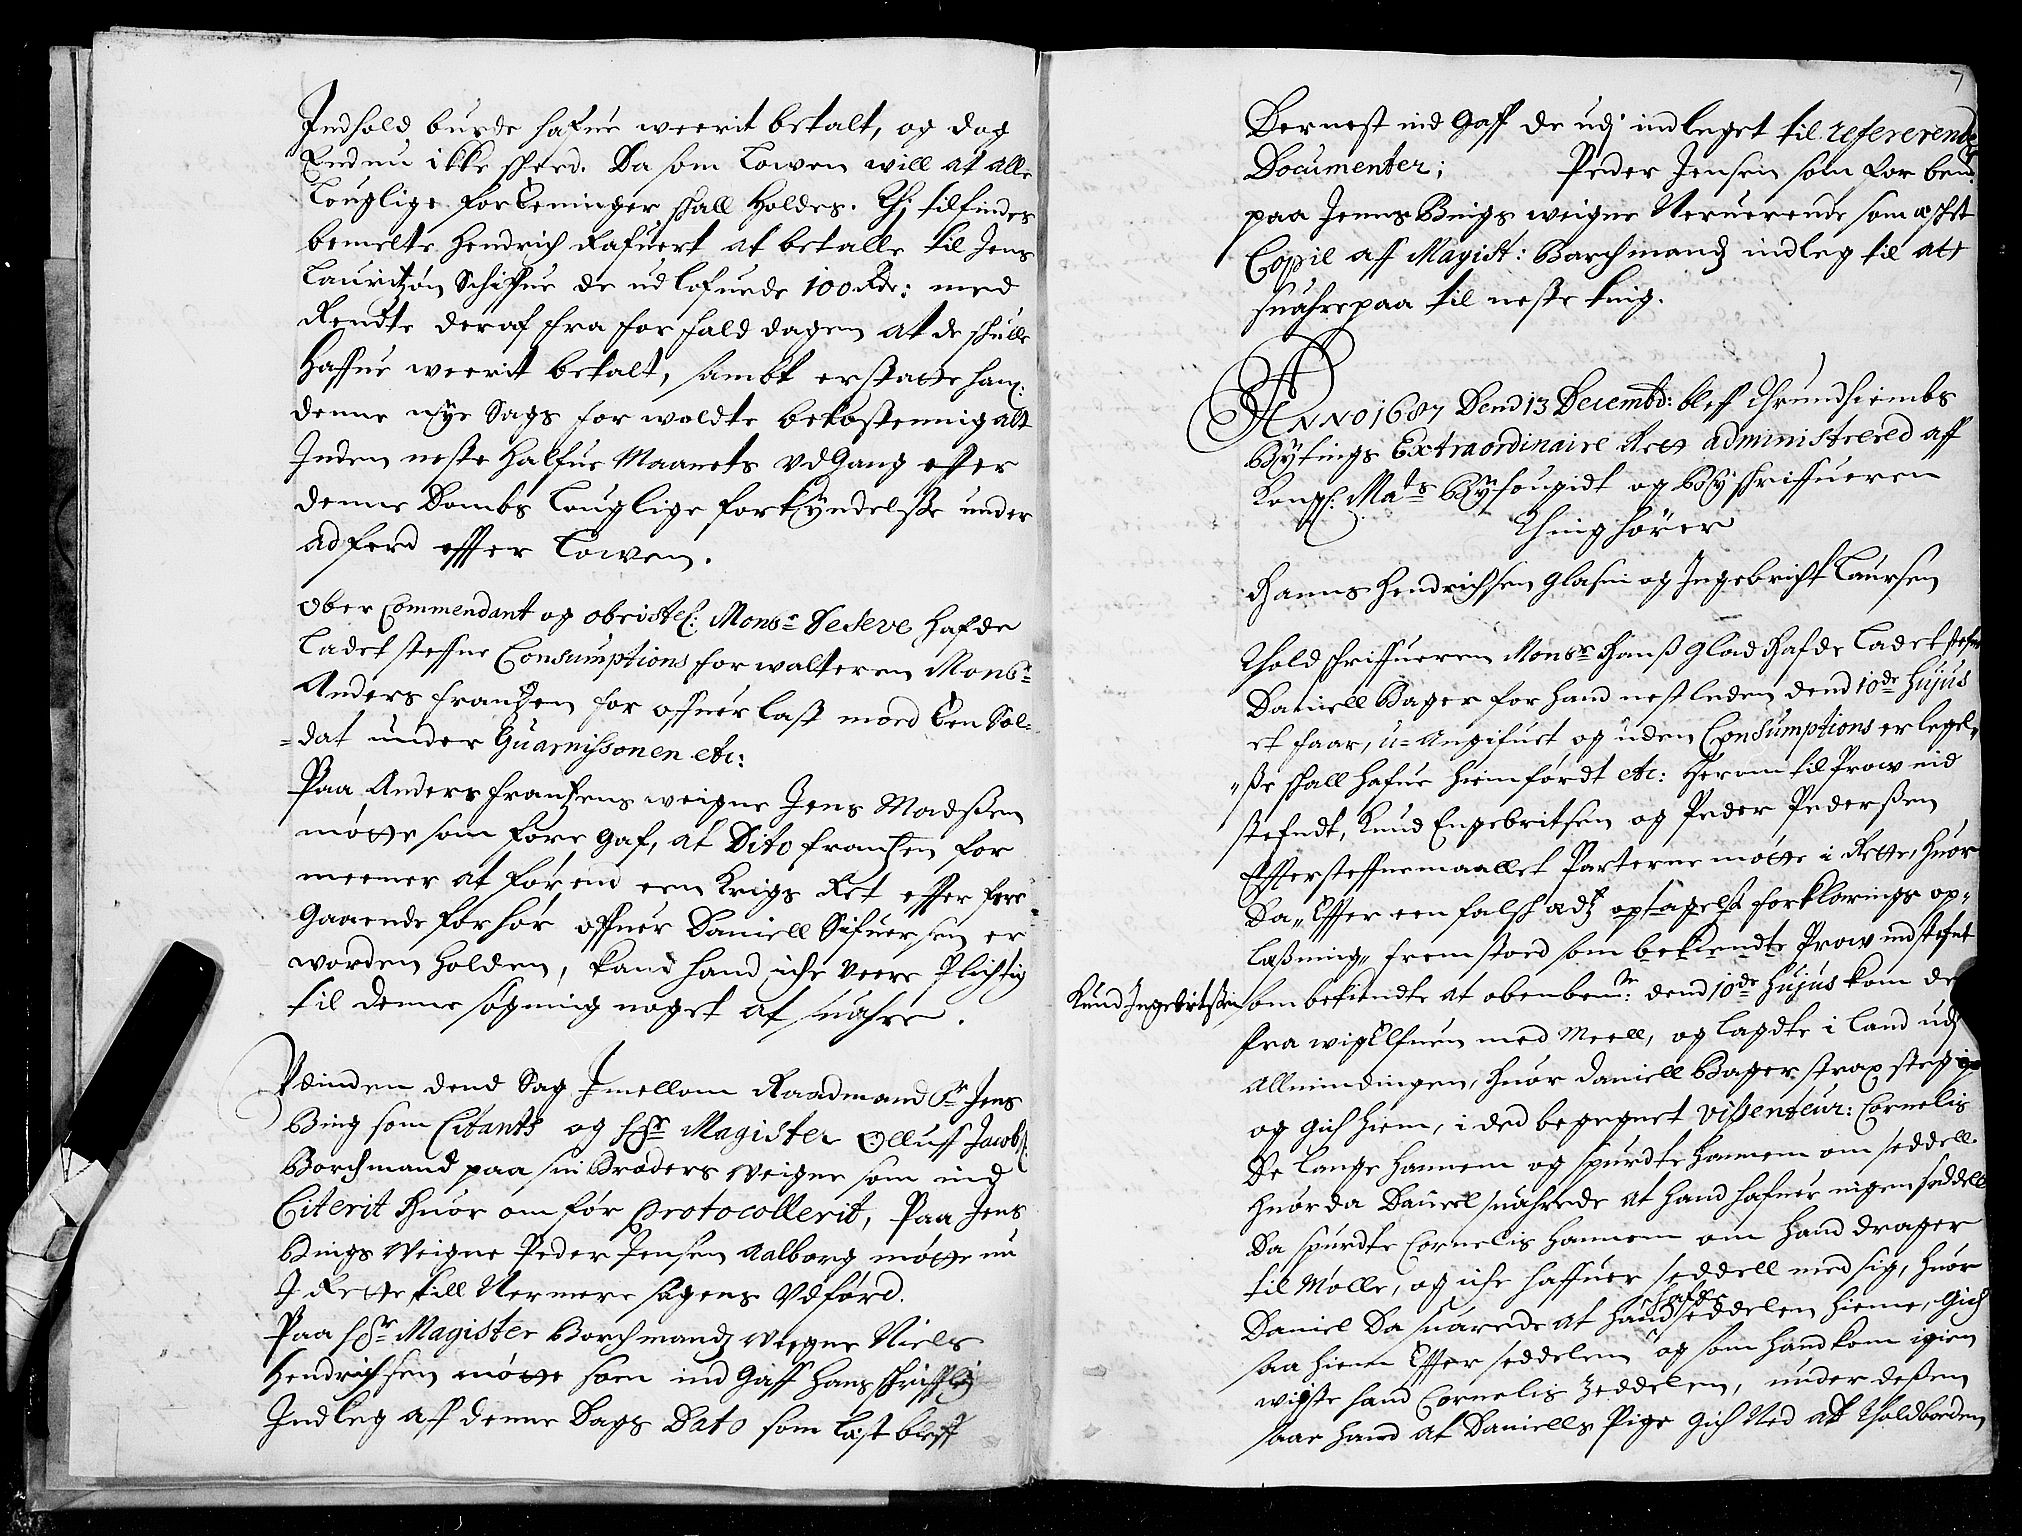 Indhold burde hafue weerit betalt, og dog
Endnu icke skeed. Da som Lowen will at alle
Louglige forEeninger skall holdes. Thj tilfindes
bemelte Hendrich Rafuert at betalle til Jens
Lauritzøn Schifue de udlofuede 100 Rdr: med
Rendte deraf fra forfald dagen at de skulle
haffue weerit betalt, sambt erstatte ham
denne nye Sags for woldte bekostening alt
Inden neste halfue Maanets Vdgang effter
denne Dombs Louglige forkyndelsse under
adferd effter Lowen.
Ober Commendant og obristl: Monsr DeSeve hafde
Ladet steffne Consumptions forwalteren Monsr
Anders Frantzen for offuerlast mod Een Sol=
=dat under Guarnissonen etc:
Paa Anders Frantzens weigne Jens Madssen
møtte som fore gaf, at Dito Frantzen for
meener at forend een Krigs Ret effter fore
gaaende forhør offuer Daniell Sifuersen er
worden holden, kand hand iche veere Plichtig
til denne søgning noget at suahre.
Vdinden dend Sag Imellom Raadmand Sr Jens
Bing som Citants og hr Magister Olluff Jacobs:
Borchmand paa sin Broders weigne som ind
Citerit huor om før Protocollerit, Paa Jens
Bings weigne Peder Jensen Aalborg møtte nu
I Rette till Nermere sagens Vdførd.
Paa hr Magister Borchmandz weigne Niels
Hendrichsen møtte som ind gaff hans skrifftlig
Indleg aff denne Dags Dato som læst bleff
7
Dernest ind gaff de udj indleget til refererende
Documenter; Peder Jensen som for bemt:
paa Jenns Bings weigne Neruerende som æsket
Copie aff Magist: Borchmandz indleg til att
suahre paa til neste ting.
ANNO 1687 Dend 13 Decembr: blef Thrundhiembs
Bytings Extraordinaire Rett administrered aff
Kongl: Mats Byfougidt og Byskriffueren
Thinghører
Hanns Hendrichsen Glasmr og Ingebricht Laursen
Tholdskriffueren Monsr Hanss Glad hafde Ladet stefne
Daniell Bager for hand nestleden dend 10de Hujus
et faar, u=angifuet og uden Consumptions erlegel„
„sse skall hafue hiemfordt etc: Herom til Prow ind
stefndt, Knud Engebritsen og Peder Pederssen
Effter steffnemaallet Parterne møtte i Rette, huor
Da„ Effter een falsk Edtz optagelse forklarings op„
lassning„ fremstoed som bekiendte Prow indstefnt
Knud Ingebritssen som bekiendte at obenbemte: dend 10de Hujus kom de
fra wigElfuen med Meell, og lagdte i land udj
Allmindingen, huor Daniell Bager strax steg
og gich hiem, i ded begegnet Vissenteur: Cornelis
De Lange hannem og spurdte hannem om seddell
huor da Daniel suahrede at hand hafuer ingen seddell
Da spurdte Cornelis hannem om hand drager
til Mølle, og iche haffuer seddell med sig, huor
Daniel Da suarede at hand hafde seddelen hieme, Gich
saa hiem Effter seddelen og som hand kom igien
wiiste hand Cornelis Zeddelen, under dessen
saae hand at Daniells Pige gich Ned at Tholdboeden